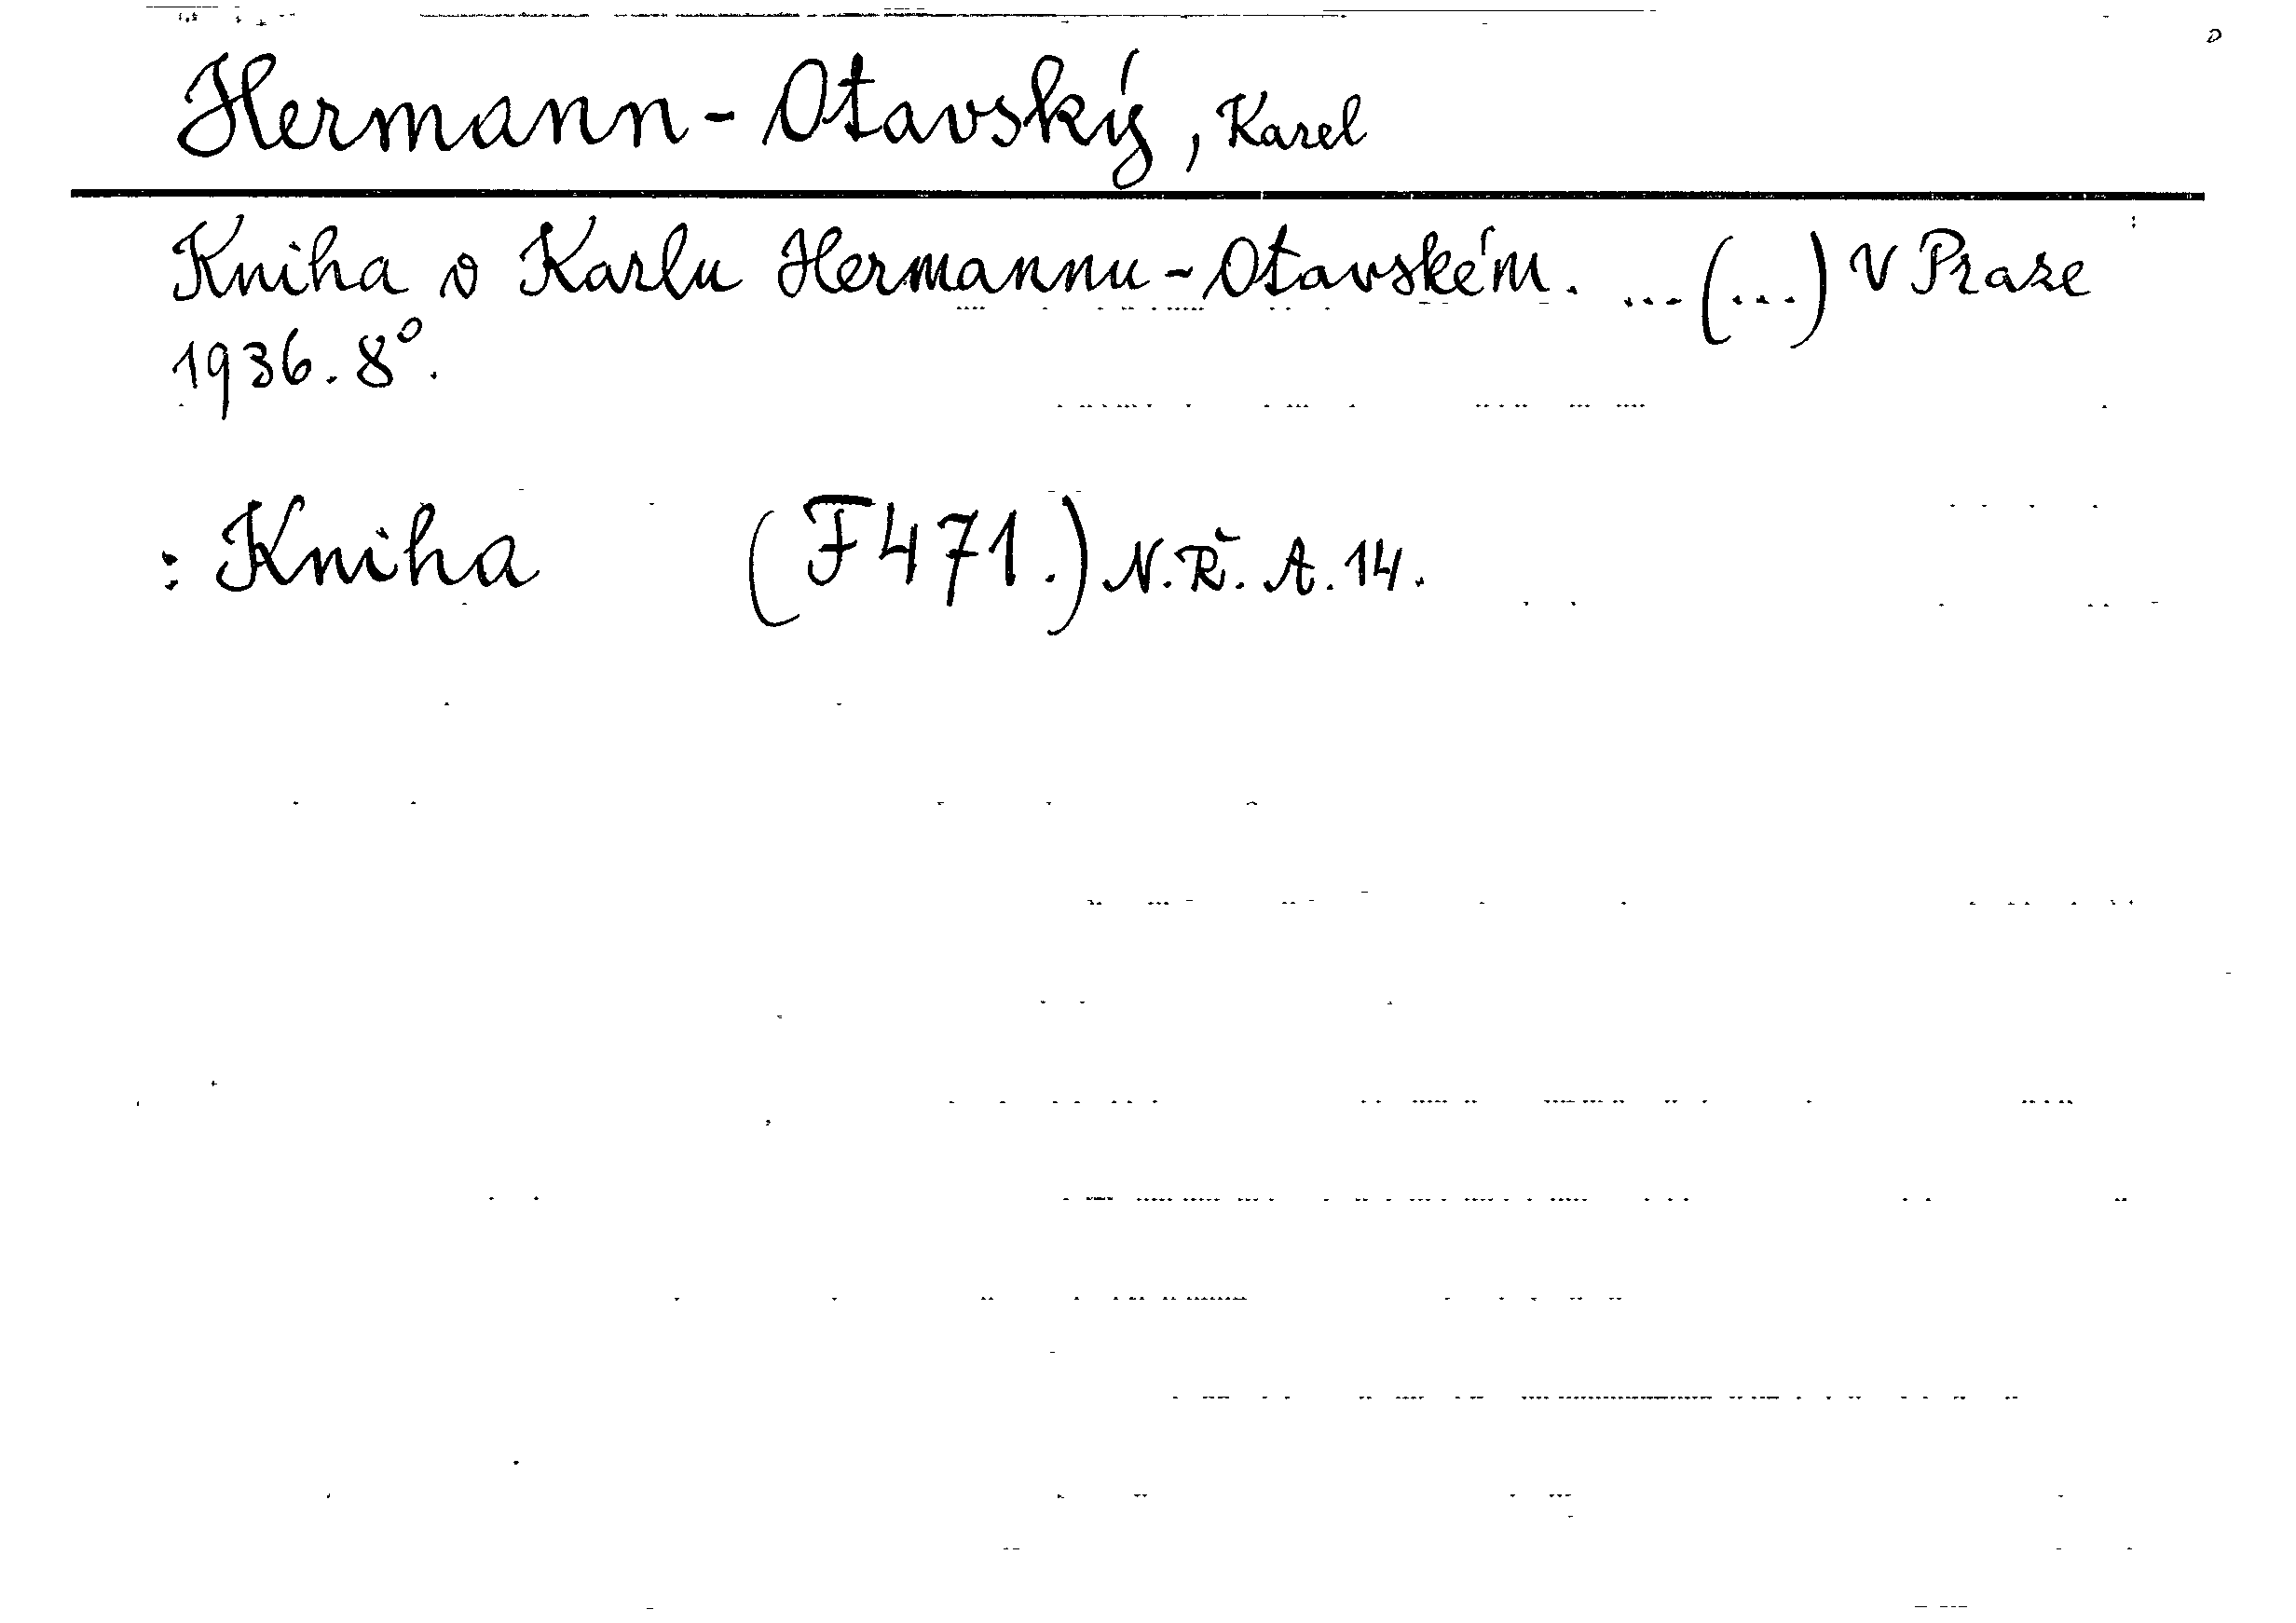 Hermann-Otavský, Karel
Kniha o Karlu Hermannu-Otavském. ...(...) V Praze
1936. 8°.
: Kniha (F471.) N.Ř. A. 14.